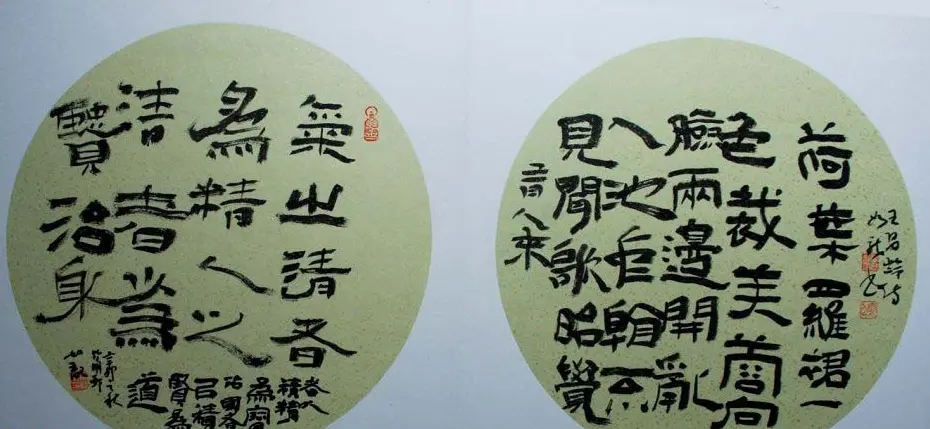 荷葉羅裙一
色裁芙蓉向
臉兩邊開亂
入池中看不
見聞歌始覺
有人來
王昌齡詩
氣之清者
為精人之
清者為
賢治身
者以
積精
為寶
治國者
以積
賢為
道